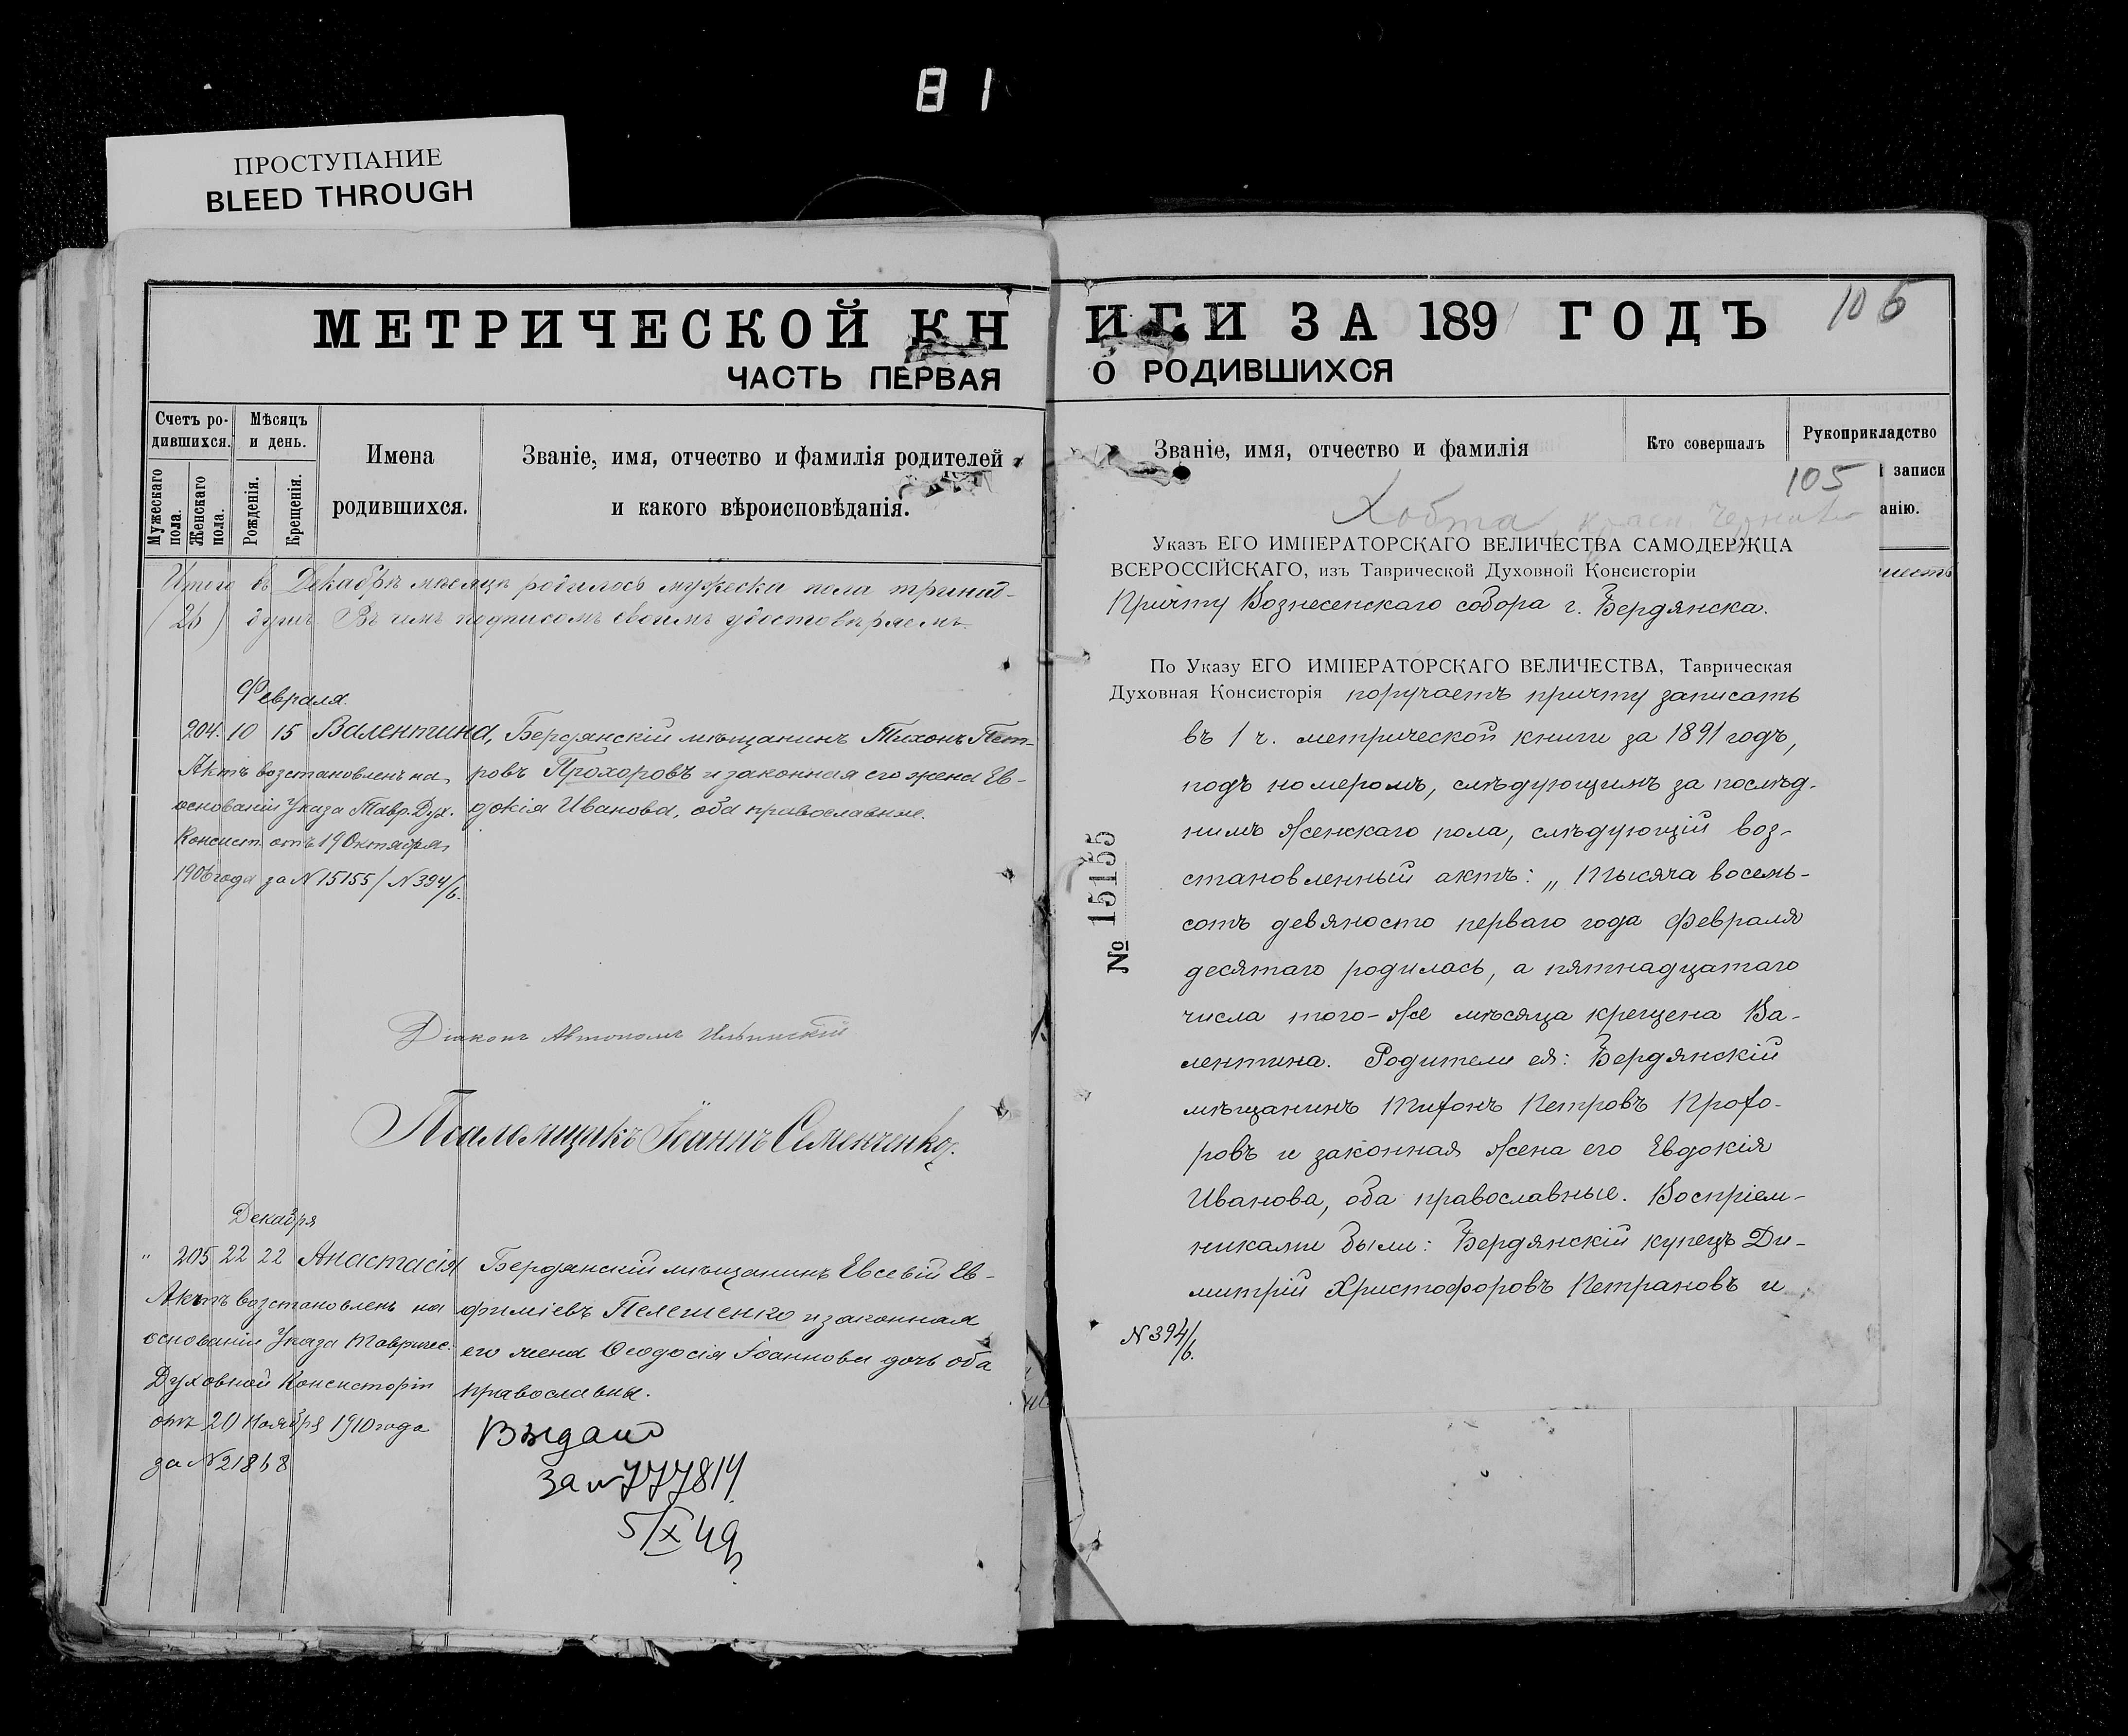 81
ПРОСТУПАНИЕ
BLEED THROUGH
МЕТРИЧЕСКОЙ КН
ЧАСТЬ ПЕРВАЯ
Счетъ ро-
дившихся.
Мѣсяцъ
и день.
Мужескаго
пола.
Женскаго
пола.
Рожденія.
Крещенія.
Имена
родившихся.
Званіе, имя, отчество и фамилія родителей
и какого вѣроисповѣданія.
Итого въ Декабрѣ мѣсяцѣ родилось мужеска пола
душъ. Въ чемъ подписомъ своимъ удостовѣряемъ.
Февраля.
204. 10 15 Валентина, Бердянскій мѣщанинъ Тихонъ Пет-
ровъ Прохоровъ и законная его жена Ев-
докія Иванова, оба православные.
Актъ возстановленъ на
основаніи Указа Тавр. Дух.
Консист. отъ 19 Октября
1906 года за N 15155 / N 394/6.
Діаконъ Автономъ Ильинскій
Псаломщикъ Іоаннъ Семенченко.
Декабря
" 205 22 22 Анастасія Бердянскій мѣщанинъ Евсевій Ев-
фиміевъ Пелешенко и законная
его жена Ѳеодосія Іоаннова дочь оба
православны.
Актъ возстановленъ на
основаніи Указа Тавричес.
Духовной Консисторіи
отъ 20 Ноября 1910 года
за N 21868
Выдано
за N 777814
5/X 49
ИГИ ЗА 1891 ГОДЪ
106
О РОДИВШИХСЯ
Званіе, имя, отчество и фамилія
Кто совершалъ
Рукоприкладство
записи
анію.
105
Хобта
Указъ ЕГО ИМПЕРАТОРСКАГО ВЕЛИЧЕСТВА САМОДЕРЖЦА
ВСЕРОССІЙСКАГО, изъ Таврической Духовной Консисторіи
Причту Вознесенскаго собора г. Бердянска.
По Указу ЕГО ИМПЕРАТОРСКАГО ВЕЛИЧЕСТВА, Таврическая
Духовная Консисторія поручаетъ причту записать
въ 1 ч. метрической книги за 1891 годъ,
подъ номеромъ, слѣдующимъ за послѣд-
нимъ женскаго пола, слѣдующій воз-
становленный актъ: „ Тысяча восемь-
сотъ девяносто перваго года Февраля
десятаго родилась, а пятнадцатаго
числа того-же мѣсяца крещена Ва-
лентина. Родители ея: Бердянскій
мѣщанинъ Тихонъ Петровъ Прохо-
ровъ и законная жена его Евдокія
Иванова, оба православные. Воспріем-
никами были: Бердянскій купецъ Ди-
митрій Христофоровъ Петрановъ и
№ 15155
N 394/6.